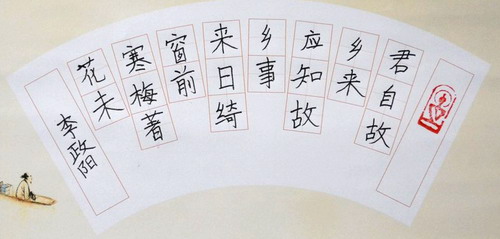 君自故
乡来
应知故
乡事
来日绮
窗前
寒梅著
花未
李政阳